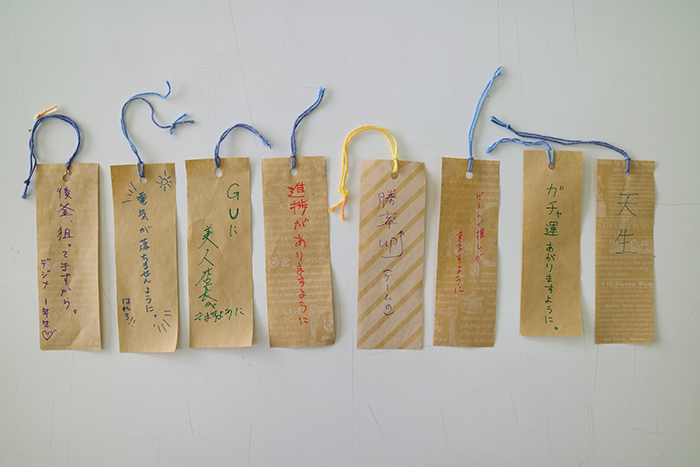 後釜、狙ってますから。
デジメ1年生♡
電気が落ちませんように。
GUに
美人店長が
きますように
進捗がありますように
勝率UP
(ゲームの)
推しが
来ますように
ガチャ運あがりますように。
天生